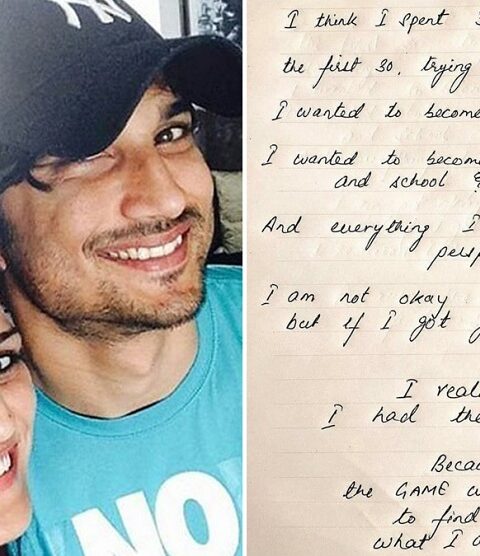 NY
NO
I think I spent
the first 30, trying
I wanted to become
I wanted to become
and school
And everything I
I am not okay
but if I got
I
I had the
the GAME
to find
what I